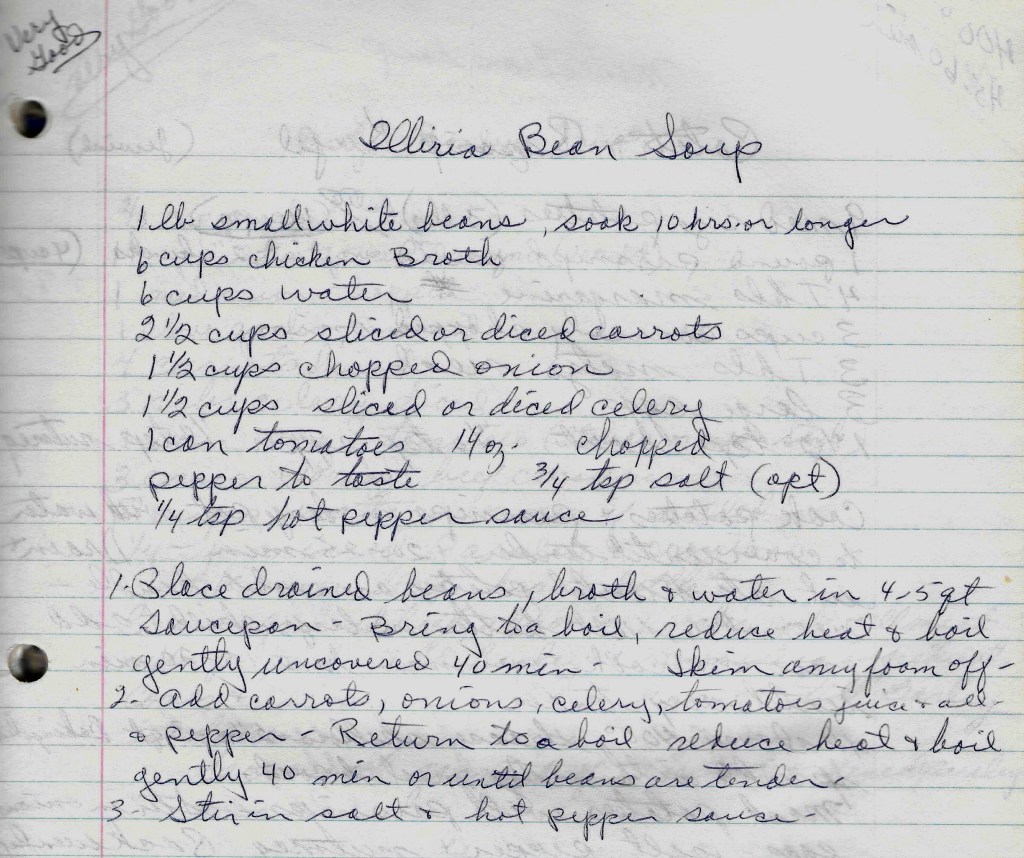 Very
Good
Illiria Bean Soup
1 lb small white beans, soak 10 hrs. or longer
6 cups chicken Broth
6 cups water
2 1/2 cups sliced or diced carrots
1 1/2 cups chopped onion
1 1/2 cups sliced or diced celery
1 can tomatoes 14 oz. chopped
pepper to taste 3/4 tsp salt (opt)
1/4 tsp hot pepper sauce
1- Place drained beans, broth & water in 4-5 qt
saucepan - Bring to a boil, reduce heat & boil
gently uncovered 40 min - Skim any foam off -
2- add carrots, onions, celery, tomatoes juice & all -
& pepper - Return to a boil reduce heat & boil
gently 40 min or until beans are tender -
3- Stir in salt & hot pepper sauce -